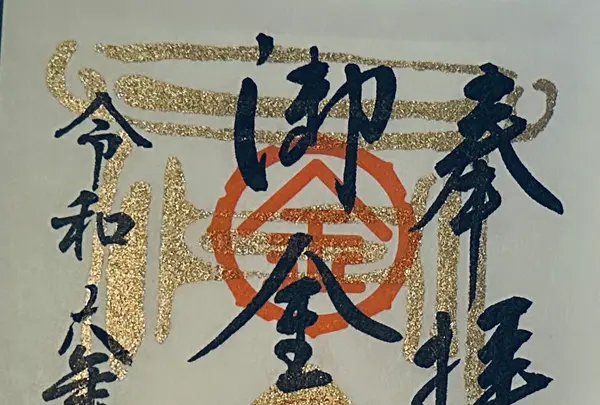 奉拝
御金
令和六年
金